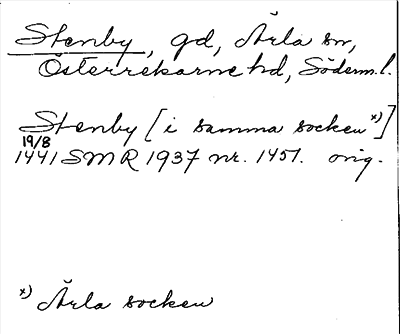 Stenby, gd, Ärla sn,
Österrekarne hd, Söderm. l.
Stenby [i samma socken *)]
19/8
1441 SMR 1937 nr. 1451. orig.
*) Ärla socken